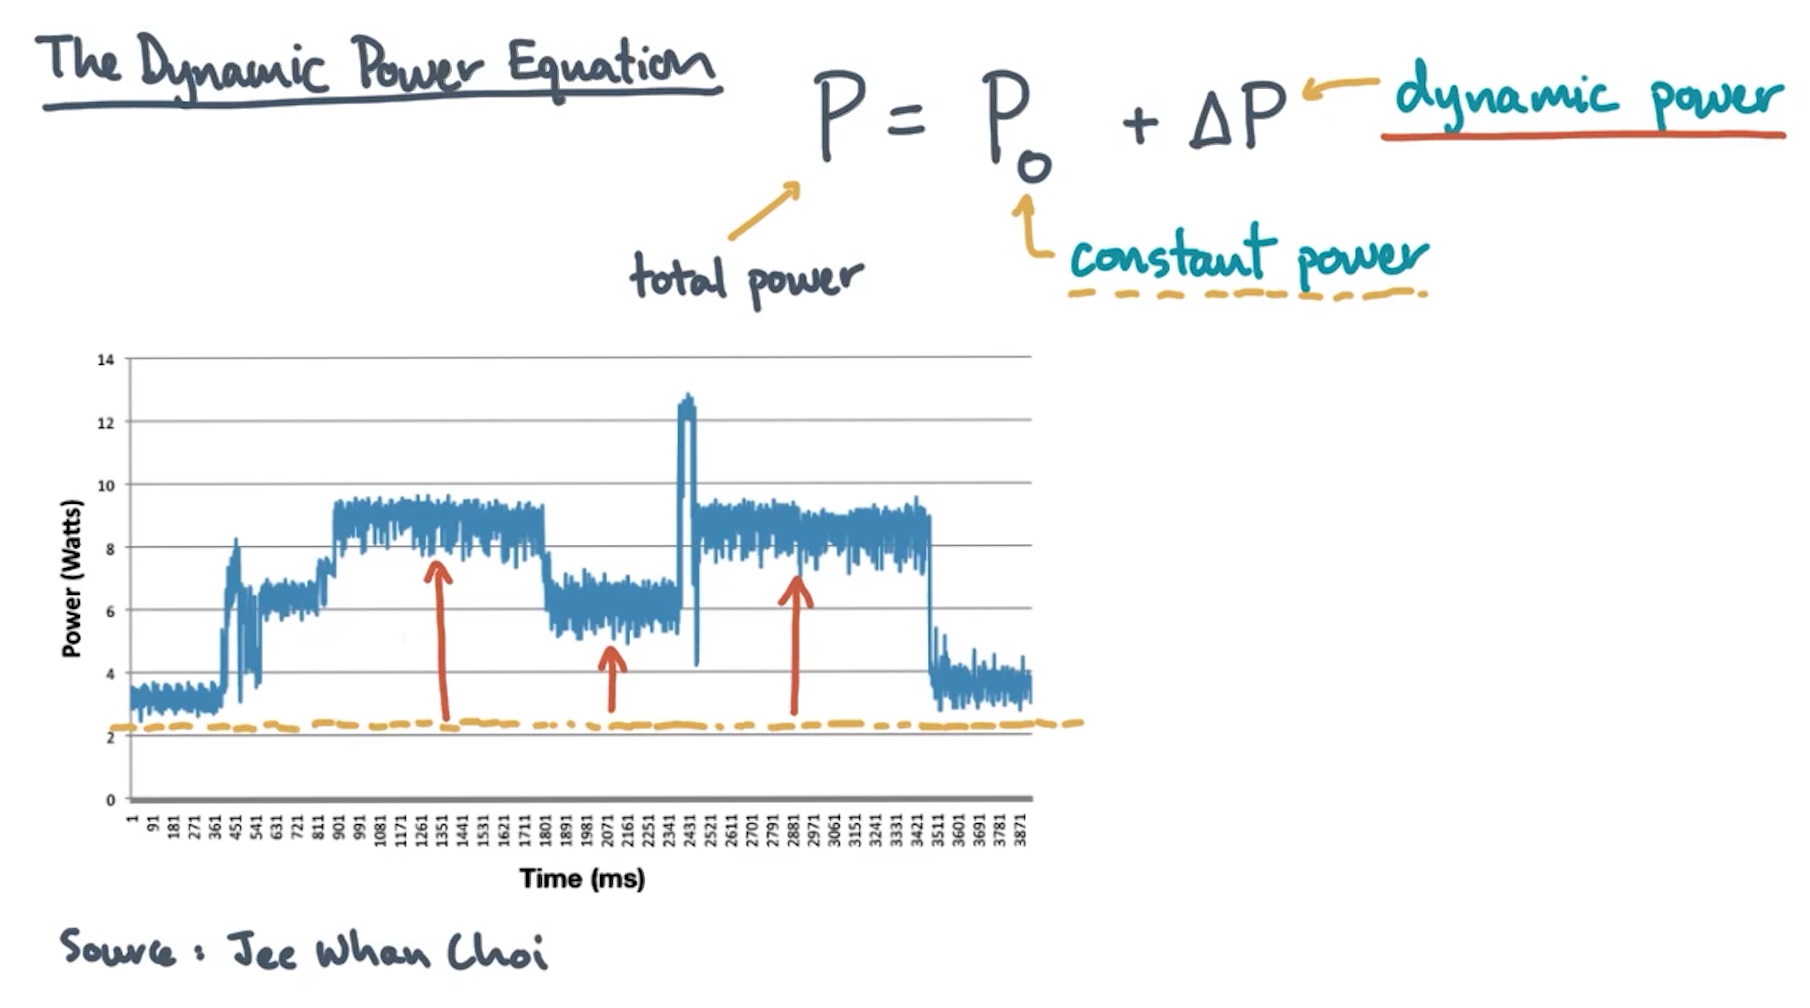 The Dynamic Power Equation
P = P₀ + ΔP
dynamic power
constant power
total power
14
12
10
8
6
4
2
0
Power (Watts)
1 91 181 271 361 451 541 631 721 811 901 991 1081 1171 1261 1351 1441 1531 1621 1711 1801 1891 1981 2071 2161 2251 2341 2431 2521 2611 2701 2791 2881 2971 3061 3151 3241 3331 3421 3511 3601 3691 3781 3871
Time (ms)
Source : Jee Whan Choi